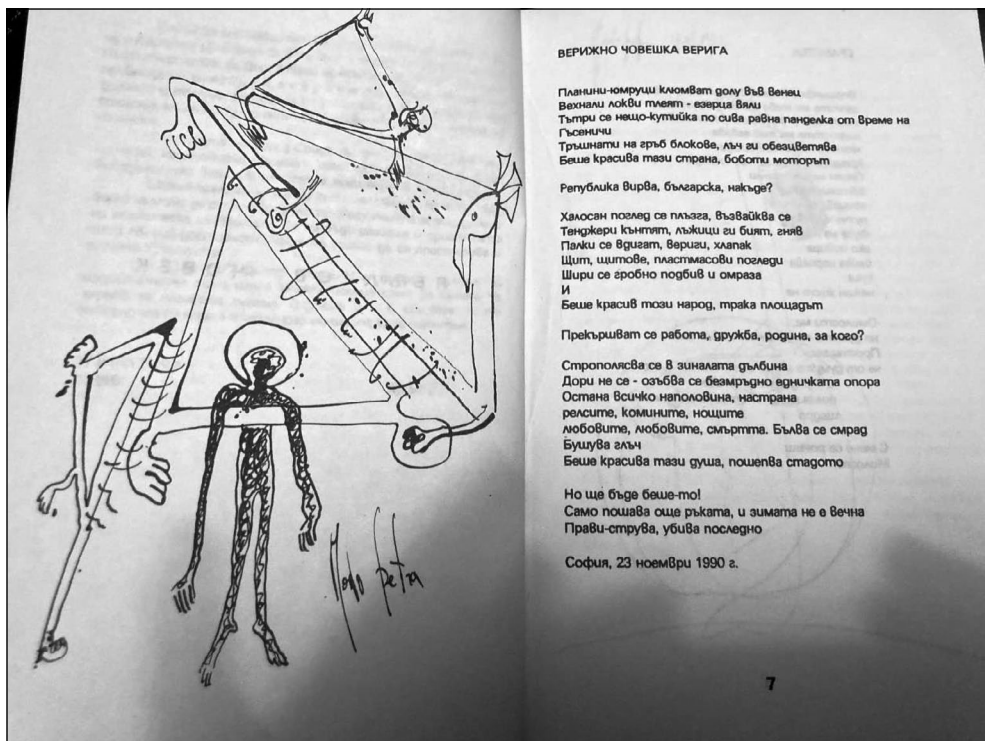 ВЕРИЖНО ЧОВЕШКА ВЕРИГА
Планини-юмруци клюмват долу във венец
Вехнали локви тлеят - езерца вяли
Тътри се нещо-кутийка по сива равна панделка от време на
Гъсеничи
Тръшнати на гръб блокове, лъч ги обезцветява
Беше красива тази страна, боботи моторът
Република вирва, българска, накъде?
Халосан поглед се плъзга, възвайква се
Тенджери кънтят, лъжици ги бият, гняв
Палки се вдигат, вериги, хлапак
Щит, щитове, пластмасови погледи
Шири се гробно подбив и омраза
И
Беше красив този народ, трака площадът
Прекършват се работа, дружба, родина, за кого?
Строполясва се в зиналата дълбина
Дори не се - озъбва се безмръдно едничката опора
Остана всичко наполовина, настрана
релсите, комините, нощите
любовите, любовите, смъртта. Бълва се смрад
Бушува глъч
Беше красива тази душа, пошепва стадото
Но ще бъде беше-то!
Само пошава още ръката, и зимата не е вечна
Прави-струва, убива последно
София, 23 ноември 1990 г.
7